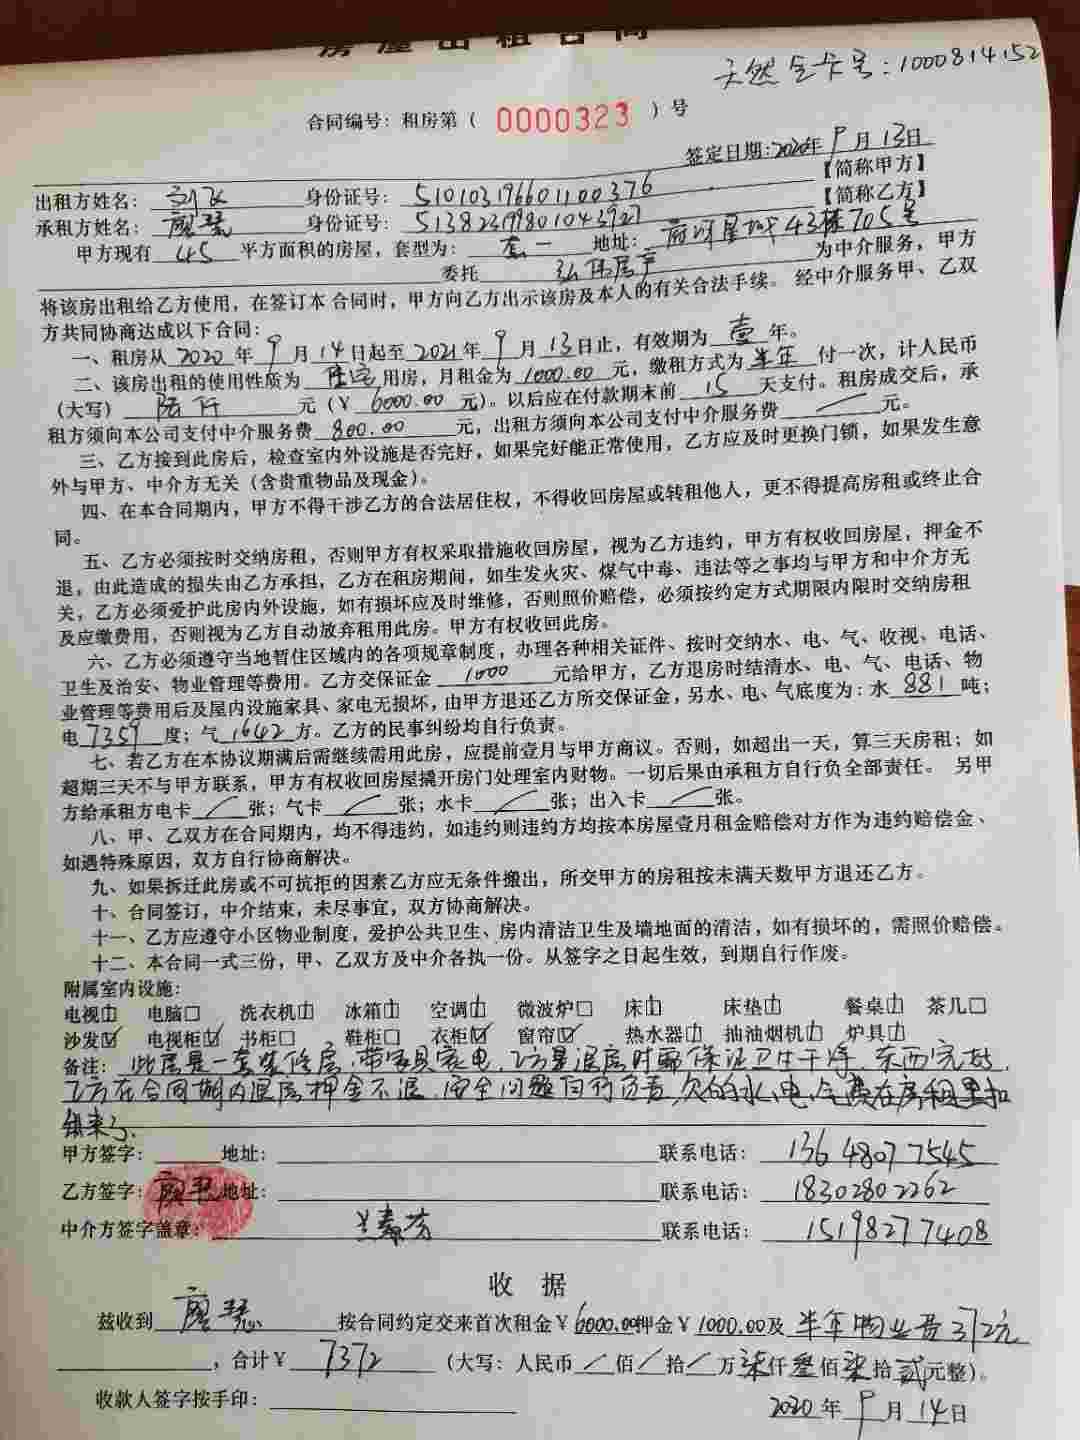 房屋出租合同
天然气卡号：1000814152
合同编号：租房第（ 0000323 ）号
签定日期:2020年9月13日
出租方姓名： 刘飞 身份证号：510103196601100376 【简称甲方】
承租方姓名： 廖慧 身份证号：513823199801043927 【简称乙方】
甲方现有 45 平方面积的房屋，套型为： 套一 地址： 43栋705号
委托 为中介服务，甲方
将该房出租给乙方使用，在签订本合同时，甲方向乙方出示该房及本人的有关合法手续。 经中介服务甲、乙双
方共同协商达成以下合同：
一、租房从 2020 年 9 月 14 日起至 2021年 9 月 13日止，有效期为 壹 年。
二、该房出租的使用性质为 住宅 用房，月租金为 1000.00 元，缴租方式为 半年 付一次，计人民币
（大写） 陆仟 元（￥ 6000.00 元）。以后应在付款期末前 15 天支付。租房成交后，承
租方须向本公司支付中介服务费 800.00 元，出租方须向本公司支付中介服务费 / 元。
三、乙方接到此房后，检查室内外设施是否完好，如果完好能正常使用，乙方应及时更换门锁，如果发生意
外与甲方、中介方无关（含贵重物品及现金）。
四、在本合同期内，甲方不得干涉乙方的合法居住权，不得收回房屋或转租他人，更不得提高房租或终止合
同。
五、乙方必须按时交纳房租，否则甲方有权采取措施收回房屋，视为乙方违约，甲方有权收回房屋，押金不
退，由此造成的损失由乙方承担，乙方在租房期间，如生发火灾、煤气中毒、违法等之事均与甲方和中介方无
关，乙方必须爱护此房内外设施，如有损坏应及时维修，否则照价赔偿，必须按约定方式期限内限时交纳房租
及应缴费用，否则视为乙方自动放弃租用此房。甲方有权收回此房。
六、乙方必须遵守当地暂住区域内的各项规章制度，办理各种相关证件、按时交纳水、电、气、收视、电话、
卫生及治安、物业管理等费用。乙方交保证金 1000 元给甲方，乙方退房时结清水、电、气、电话、物
业管理等费用后及屋内设施家具、家电无损坏，由甲方退还乙方所交保证金，另水、电、气底度为：水 881 吨；
电 7359 度；气 1642 方。乙方的民事纠纷均自行负责。
七、若乙方在本协议期满后需继续需用此房，应提前壹月与甲方商议。否则，如超出一天，算三天房租；如
超期三天不与甲方联系，甲方有权收回房屋撬开房门处理室内财物。一切后果由承租方自行负全部责任。 另甲
方给承租方电卡 / 张；气卡 / 张；水卡 / 张；出入卡 / 张。
八、甲、乙双方在合同期内，均不得违约，如违约则违约方均按本房屋壹月租金赔偿对方作为违约赔偿金、
如遇特殊原因，双方自行协商解决。
九、如果拆迁此房或不可抗拒的因素乙方应无条件搬出，所交甲方的房租按未满天数甲方退还乙方。
十、合同签订，中介结束，未尽事宜，双方协商解决。
十一、乙方应遵守小区物业制度，爱护公共卫生、房内清洁卫生及墙地面的清洁，如有损坏的，需照价赔偿。
十二、本合同一式三份，甲、乙双方及中介各执一份。从签字之日起生效，到期自行作废。
附属室内设施：
电视 电脑□ 洗衣机 冰箱 空调 微波炉□ 床 床垫 餐桌 茶几□
沙发☑ 电视柜☑ 书柜□ 鞋柜□ 衣柜☑ 窗帘☑ 热水器 抽油烟机 炉具
备注： 此房是一套装修房，带家具家电，乙方是退房时需保证卫生干净，东西完好，
乙方在合同期内退房押金不退，安全问题自行负责，欠的水、电、气费在房租里扣
除来了.
甲方签字： 地址： 联系电话： 13648077545
乙方签字： 廖慧 地址： 联系电话： 18302802262
中介方签字盖章： 兰素芳 联系电话： 15198277408
收 据
兹收到 廖慧 按合同约定交来首次租金￥6000.00押金￥1000.00及 半年物业费372元
，合计￥ 7372 （大写：人民币 / 佰 / 拾 / 万柒仟叁佰柒拾贰元整）。
收款人签字按手印：
2020 年 9 月 14 日